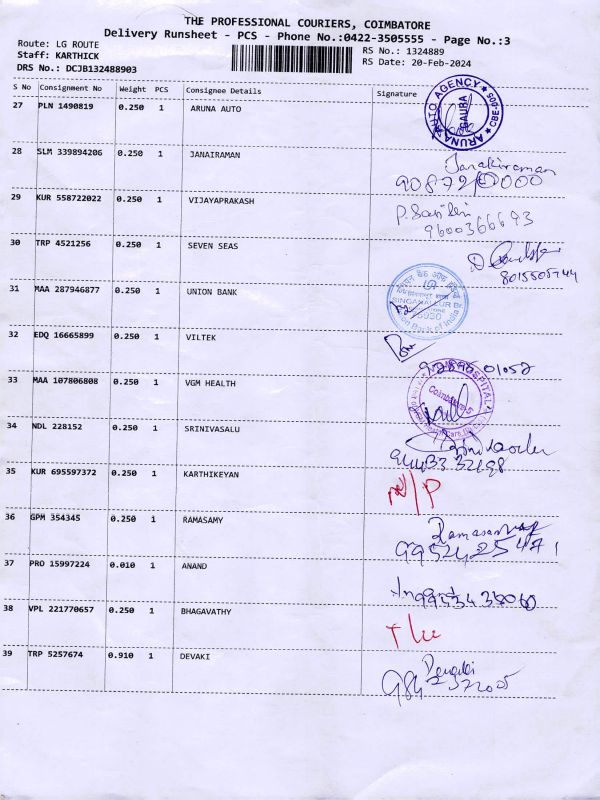 THE PROFESSIONAL COURIERS, COIMBATORE
Delivery Runsheet - PCS - Phone No.:0422-3505555 - Page No.:3
Route: LG ROUTE
RS No.: 1324889
Staff: KARTHICK
RS Date: 20-Feb-2024
DRS No.: DCJB132488903
S No Consignment No Weight PCS Consignee Details Signature
27 PLN 1490819 0.250 1 ARUNA AUTO
ARUNA AUTO AGENCY
CBE-005
28 SLM 339894206 0.250 1 JANAIRAMAN
Janakiraman
29 KUR 558722022 0.250 1 VIJAYAPRAKASH
9600366693
30 TRP 4521256 0.250 1 SEVEN SEAS
31 MAA 287946877 0.250 1 UNION BANK
SINGANALLUR Br
Union Bank of India
32 EDQ 16665899 0.250 1 VILTEK
33 MAA 107806808 0.250 1 VGM HEALTH
HOSPITAL
Coimbatore-5
34 NDL 228152 0.250 1 SRINIVASALU
35 KUR 695597372 0.250 1 KARTHIKEYAN
36 GPM 354345 0.250 1 RAMASAMY
Ramasamy
37 PRO 15997224 0.010 1 ANAND
38 VPL 221770657 0.250 1 BHAGAVATHY
39 TRP 5257674 0.910 1 DEVAKI